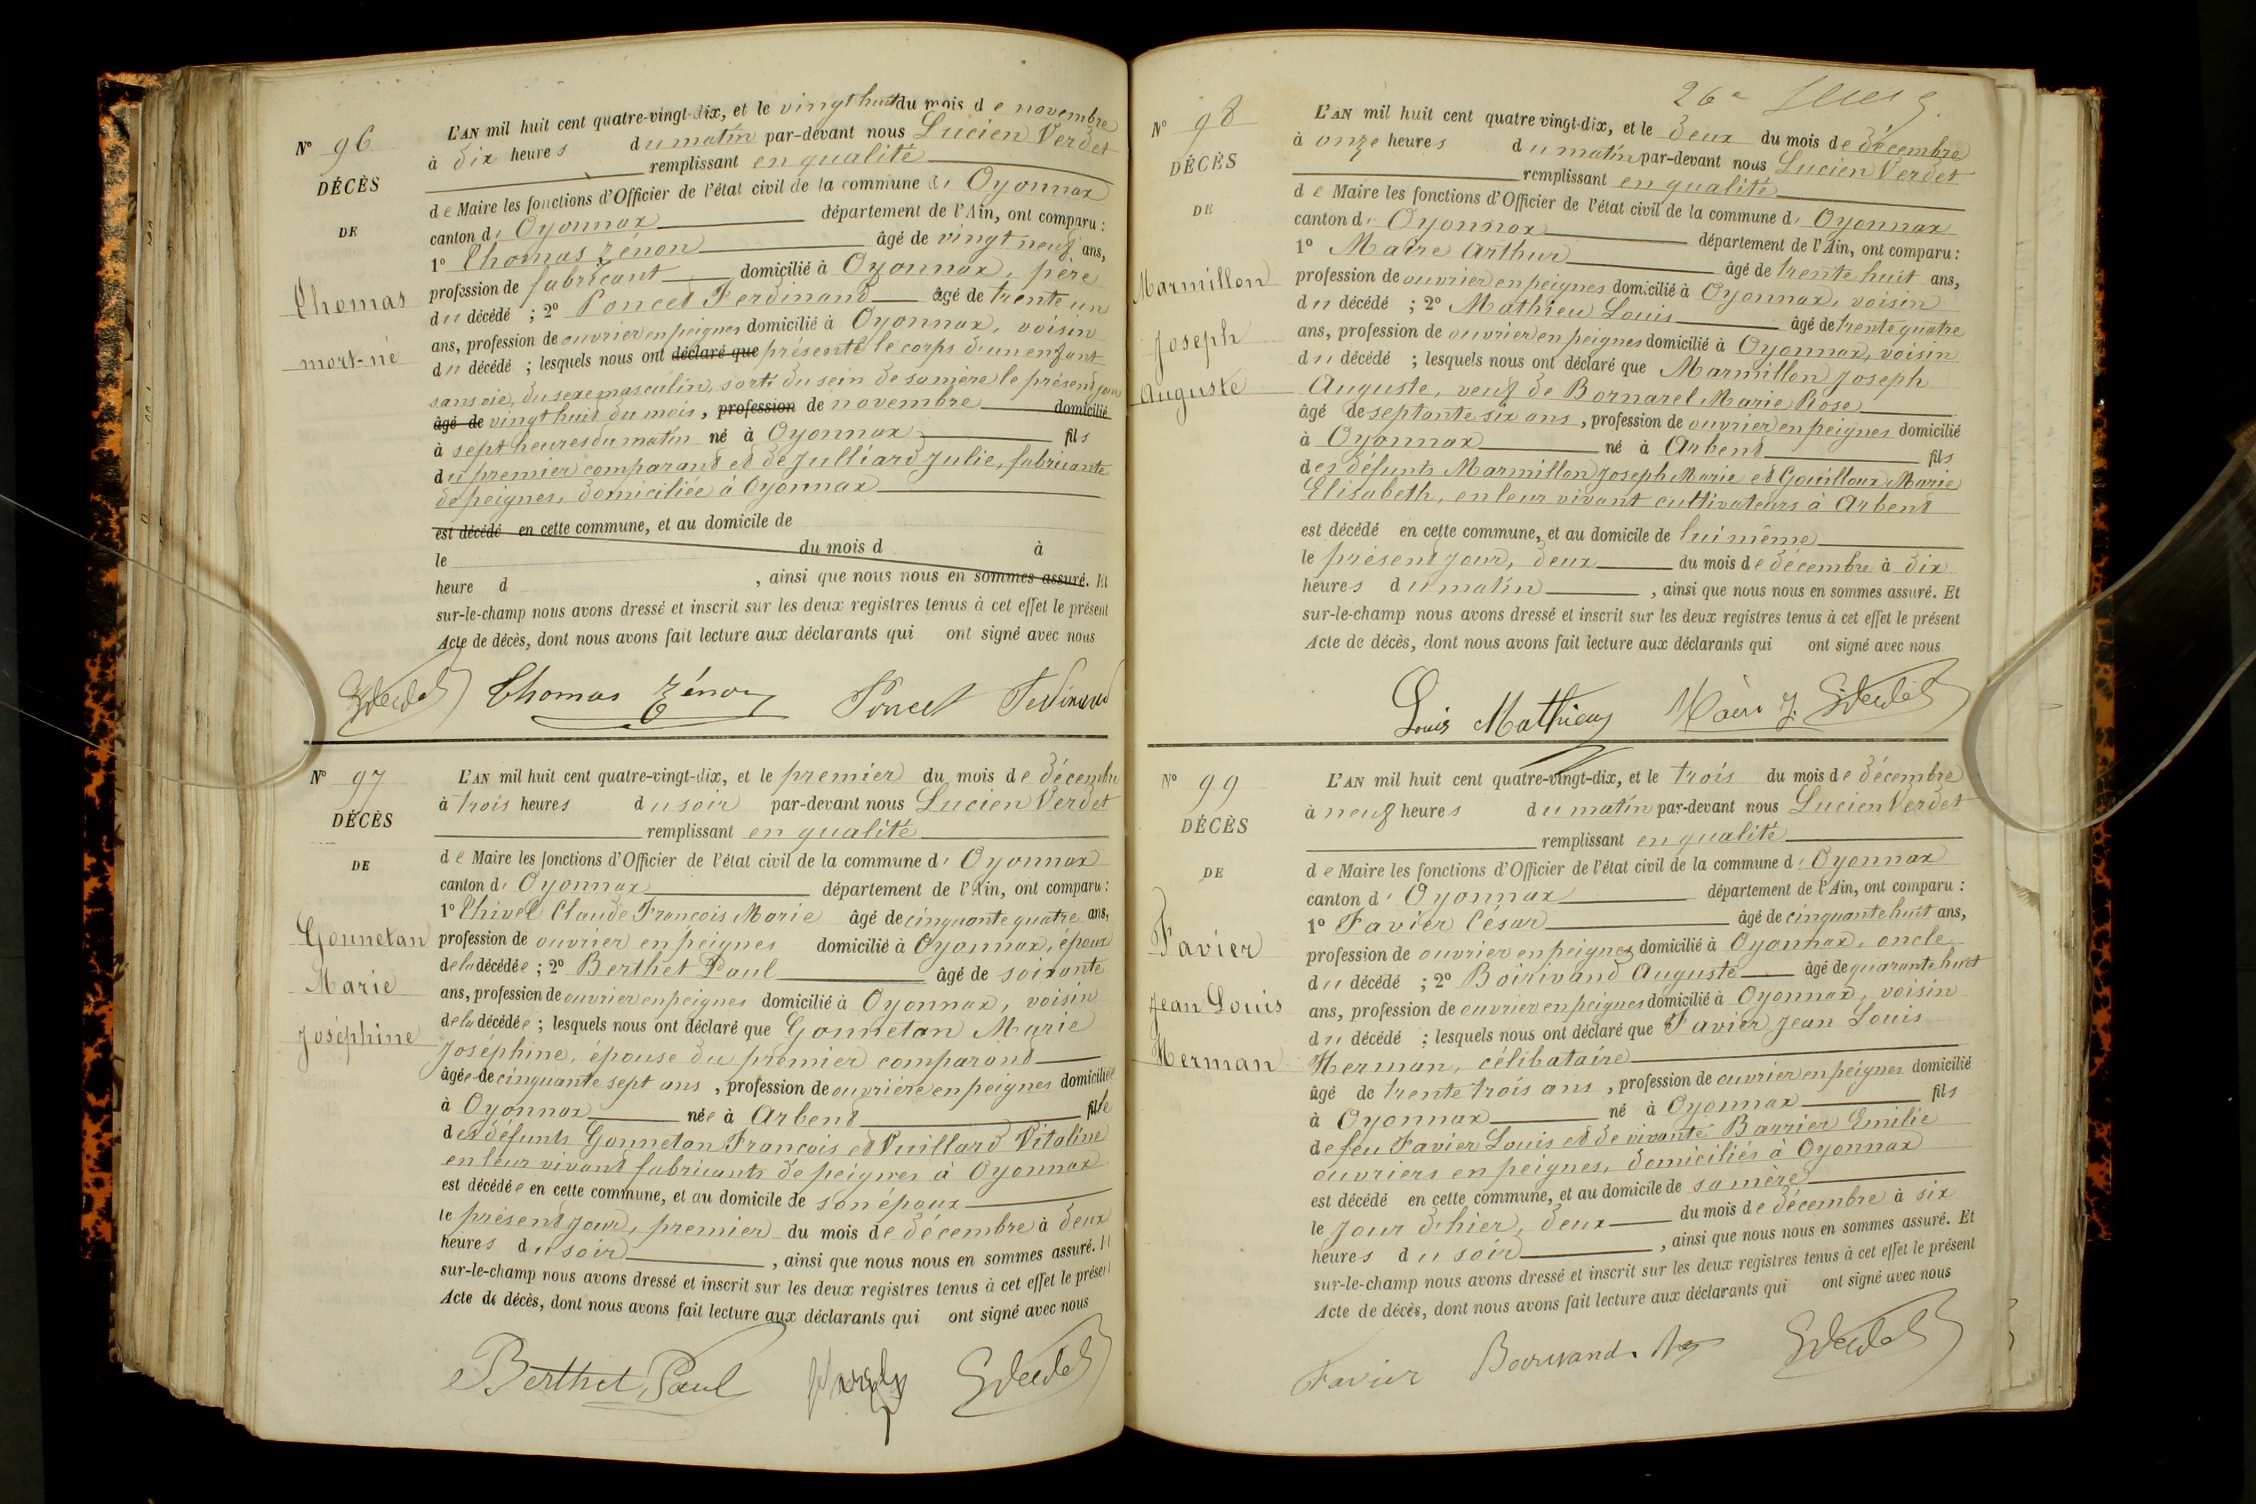 N° 96
DÉCÈS
DE
Thomas
mort-né
L'AN mil huit cent quatre-vingt-dix, et le vingt huit du mois de novembre
à dix heures du matin par-devant nous Lucien Verdet
remplissant en qualité
de Maire les fonctions d'Officier de l'état civil de la commune d' Oyonnax
canton d' Oyonnax département de l'Ain, ont comparu :
1° Thomas Zénon âgé de vingt neuf ans,
profession de fabricant domicilié à Oyonnax, père
du décédé ; 2° Poncet Ferdinand âgé de trente un
ans, profession de ouvrier en peignes domicilié à Oyonnax, voisin
du décédé ; lesquels nous ont déclaré que présenté le corps d'un enfant
sans vie, du sexe masculin, sorti du sein de sa mère le présent jour
âgé de vingt huit du mois, profession de novembre domicilié
à sept heures du matin né à Oyonnax fils
du premier comparant et de Julliard Julie, fabricante
de peignes, domiciliée à Oyonnax
est décédé en cette commune, et au domicile de
le du mois d à
heure d , ainsi que nous nous en sommes assuré. Et
sur-le-champ nous avons dressé et inscrit sur les deux registres tenus à cet effet le présent
Acte de décès, dont nous avons fait lecture aux déclarants qui ont signé avec nous
Thomas Zénon Poncet Ferdinand
N° 97
DÉCÈS
DE
Gonnetan
Marie
Joséphine
L'AN mil huit cent quatre-vingt-dix, et le premier du mois de décembre
à trois heures du soir par-devant nous Lucien Verdet
remplissant en qualité
de Maire les fonctions d'Officier de l'état civil de la commune d' Oyonnax
canton d' Oyonnax département de l'Ain, ont comparu :
1° Thivel Claude François Marie âgé de cinquante quatre ans,
profession de ouvrier en peignes domicilié à Oyonnax, époux
de la décédée ; 2° Berthet Paul âgé de soixante
ans, profession de ouvrier en peignes domicilié à Oyonnax, voisin
de la décédée ; lesquels nous ont déclaré que Gonnetan Marie
Joséphine, épouse du premier comparant
âgée de cinquante sept ans, profession de ouvrière en peignes domiciliée
à Oyonnax née à Arbent fille
des défunts Gonnetan François et Vuillard Vitaline
en leur vivant fabricants de peignes à Oyonnax
est décédée en cette commune, et au domicile de son époux
le présent jour, premier du mois de décembre à deux
heures du soir, ainsi que nous nous en sommes assuré. Et
sur-le-champ nous avons dressé et inscrit sur les deux registres tenus à cet effet le présent
Acte de décès, dont nous avons fait lecture aux déclarants qui ont signé avec nous
Berthet Paul
26e
N° 98
DÉCÈS
DE
Marmillon
Joseph
Auguste
L'AN mil huit cent quatre vingt-dix, et le deux du mois de décembre
à onze heures du matin par-devant nous Lucien Verdet
remplissant en qualité
de Maire les fonctions d'Officier de l'état civil de la commune d' Oyonnax
canton d' Oyonnax département de l'Ain, ont comparu :
1° Maire Arthur âgé de trente huit ans,
profession de ouvrier en peignes domicilié à Oyonnax, voisin
du décédé ; 2° Mathieu Louis âgé de trente quatre
ans, profession de ouvrier en peignes domicilié à Oyonnax, voisin
du décédé ; lesquels nous ont déclaré que Marmillon Joseph
Auguste, veuf de Bornarel Marie Rose
âgé de septante six ans, profession de ouvrier en peignes domicilié
à Oyonnax né à Arbent fils
des défunts Marmillon Joseph Marie et Gouilloux Marie
Elisabeth, en leur vivant cultivateurs à Arbent
est décédé en cette commune, et au domicile de lui même
le présent jour, deux du mois de décembre à dix
heures du matin, ainsi que nous nous en sommes assuré. Et
sur-le-champ nous avons dressé et inscrit sur les deux registres tenus à cet effet le présent
Acte de décès, dont nous avons fait lecture aux déclarants qui ont signé avec nous
Louis Mathieu
N° 99
DÉCÈS
DE
Favier
Jean Louis
Herman
L'AN mil huit cent quatre-vingt-dix, et le trois du mois de décembre
à neuf heures du matin par-devant nous Lucien Verdet
remplissant en qualité
de Maire les fonctions d'Officier de l'état civil de la commune d' Oyonnax
canton d' Oyonnax département de l'Ain, ont comparu :
1° Favier César âgé de cinquante huit ans,
profession de ouvrier en peignes domicilié à Oyonnax, oncle
du décédé ; 2° Boirivand Auguste âgé de quarante huit
ans, profession de ouvrier en peignes domicilié à Oyonnax, voisin
du décédé ; lesquels nous ont déclaré que Favier Jean Louis
Herman, célibataire
âgé de trente trois ans, profession de ouvrier en peignes domicilié
à Oyonnax né à Oyonnax fils
de feu Favier Louis et de vivante Barrier Emilie
ouvriers en peignes, domiciliés à Oyonnax
est décédé en cette commune, et au domicile de sa mère
le jour d'hier, deux du mois de décembre à six
heures du soir, ainsi que nous nous en sommes assuré. Et
sur-le-champ nous avons dressé et inscrit sur les deux registres tenus à cet effet le présent
Acte de décès, dont nous avons fait lecture aux déclarants qui ont signé avec nous
Favier